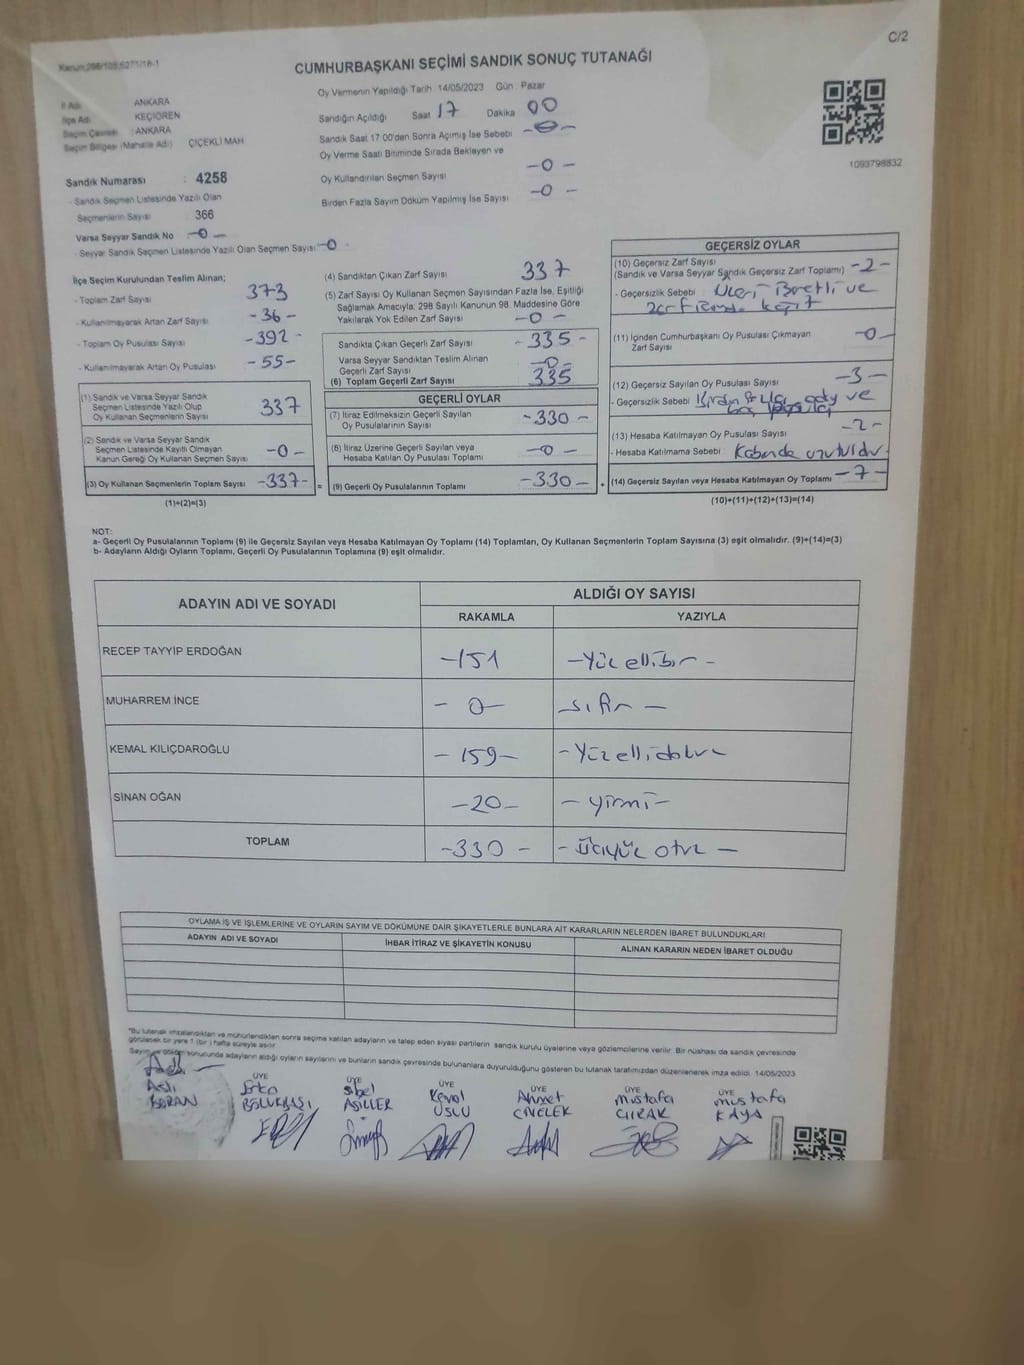 C/2
Kanun:298/105,6271/18-1
CUMHURBAŞKANI SEÇİMİ SANDIK SONUÇ TUTANAĞI
Oy Vermenin Yapıldığı Tarih 14/05/2023 Gün : Pazar
İl Adı ANKARA
İlçe Adı KEÇİÖREN
Seçim Çevresi : ANKARA
Seçim Bölgesi (Mahalle Adı) ÇİÇEKLİ MAH
Sandığın Açıldığı Saat 17 Dakika 00
Sandık Saat 17.00'den Sonra Açımış İse Sebebi -0-
Oy Verme Saati Bitiminde Sırada Bekleyen ve
Oy Kullandırılan Seçmen Sayısı -0-
Birden Fazla Sayım Döküm Yapılmış İse Sayısı -0-
1093798832
Sandık Numarası : 4258
- Sandık Seçmen Listesinde Yazılı Olan
Seçmenlerin Sayısı 366
Varsa Seyyar Sandık No -0-
- Seyyar Sandık Seçmen Listesinde Yazılı Olan Seçmen Sayısı -0
İlçe Seçim Kurulundan Teslim Alınan;
- Toplam Zarf Sayısı 373
- Kullanılmayarak Artan Zarf Sayısı -36-
- Toplam Oy Pusulası Sayısı -392-
- Kullanılmayarak Artan Oy Pusulası -55-
(1) Sandık ve Varsa Seyyar Sandık
Seçmen Listesinde Yazılı Olup
Oy Kullanan Seçmenlerin Sayısı 337
(2) Sandık ve Varsa Seyyar Sandık
Seçmen Listesinde Kayıtlı Olmayan
Kanun Gereği Oy Kullanan Seçmen Sayısı -0-
(3) Oy Kullanan Seçmenlerin Toplam Sayısı -337- =
(1)+(2)=(3)
(4) Sandıktan Çıkan Zarf Sayısı 337
(5) Zarf Sayısı Oy Kullanan Seçmen Sayısından Fazla İse, Eşitliği
Sağlamak Amacıyla; 298 Sayılı Kanunun 98. Maddesine Göre
Yakılarak Yok Edilen Zarf Sayısı -0-
Sandıkta Çıkan Geçerli Zarf Sayısı -335-
Varsa Seyyar Sandıktan Teslim Alınan
Geçerli Zarf Sayısı -0-
(6) Toplam Geçerli Zarf Sayısı 335
GEÇERLİ OYLAR
(7) İtiraz Edilmeksizin Geçerli Sayılan
Oy Pusulalarının Sayısı -330-
(8) İtiraz Üzerine Geçerli Sayılan veya
Hesaba Katılan Oy Pusulası Toplamı -0-
(9) Geçerli Oy Pusulalarının Toplamı -330- +
GEÇERSİZ OYLAR
(10) Geçersiz Zarf Sayısı
(Sandık ve Varsa Seyyar Sandık Geçersiz Zarf Toplamı) -2-
- Geçersizlik Sebebi : Üzeri İşaretli ve
(11) İçinden Cumhurbaşkanı Oy Pusulası Çıkmayan
Zarf Sayısı -0-
(12) Geçersiz Sayılan Oy Pusulası Sayısı -3-
- Geçersizlik Sebebi
(13) Hesaba Katılmayan Oy Pusulası Sayısı -2-
- Hesaba Katılmama Sebebi : Kabinde unutuldu.
(14) Geçersiz Sayılan veya Hesaba Katılmayan Oy Toplamı -7-
(10)+(11)+(12)+(13)=(14)
NOT:
a- Geçerli Oy Pusulalarının Toplamı (9) ile Geçersiz Sayılan veya Hesaba Katılmayan Oy Toplamı (14) Toplamları, Oy Kullanan Seçmenlerin Toplam Sayısına (3) eşit olmalıdır. (9)+(14)=(3)
b- Adayların Aldığı Oyların Toplamı, Geçerli Oy Pusulalarının Toplamına (9) eşit olmalıdır.
ADAYIN ADI VE SOYADI
ALDIĞI OY SAYISI
RAKAMLA YAZIYLA
RECEP TAYYİP ERDOĞAN -151 -Yüz ellibir-
MUHARREM İNCE -0- sıfır-
KEMAL KILIÇDAROĞLU -159- -Yüz ellidokuz
SİNAN OĞAN -20- -yirmi-
TOPLAM -330- -üçyüz otuz-
OYLAMA İŞ VE İŞLEMLERİNE VE OYLARIN SAYIM VE DÖKÜMÜNE DAİR ŞİKAYETLERLE BUNLARA AİT KARARLARIN NELERDEN İBARET BULUNDUKLARI
ADAYIN ADI VE SOYADI İHBAR İTİRAZ VE ŞİKAYETİN KONUSU ALINAN KARARIN NEDEN İBARET OLDUĞU
*Bu tutanak imzalandıktan ve mühürlendikten sonra seçime katılan adayların ve talep eden siyasi partilerin sandık kurulu üyelerine veya gözlemcilerine verilir. Bir nüshası da sandık çevresinde
görülecek bir yere 1 (bir) hafta süreyle asılır.
Sayım ve döküm sonucunda adayların aldığı oyların sayılarını ve bunların sandık çevresinde bulunanlara duyurulduğunu gösteren bu tutanak tarafımızdan düzenlenerek imza edildi. 14/05/2023
ÜYE ÜYE ÜYE ÜYE ÜYE ÜYE
Aslı BORAN
BÖLÜKBAŞI
Sibel
Kemal USLU
Ahmet
Mustafa CIRAK
Mustafa KAYA